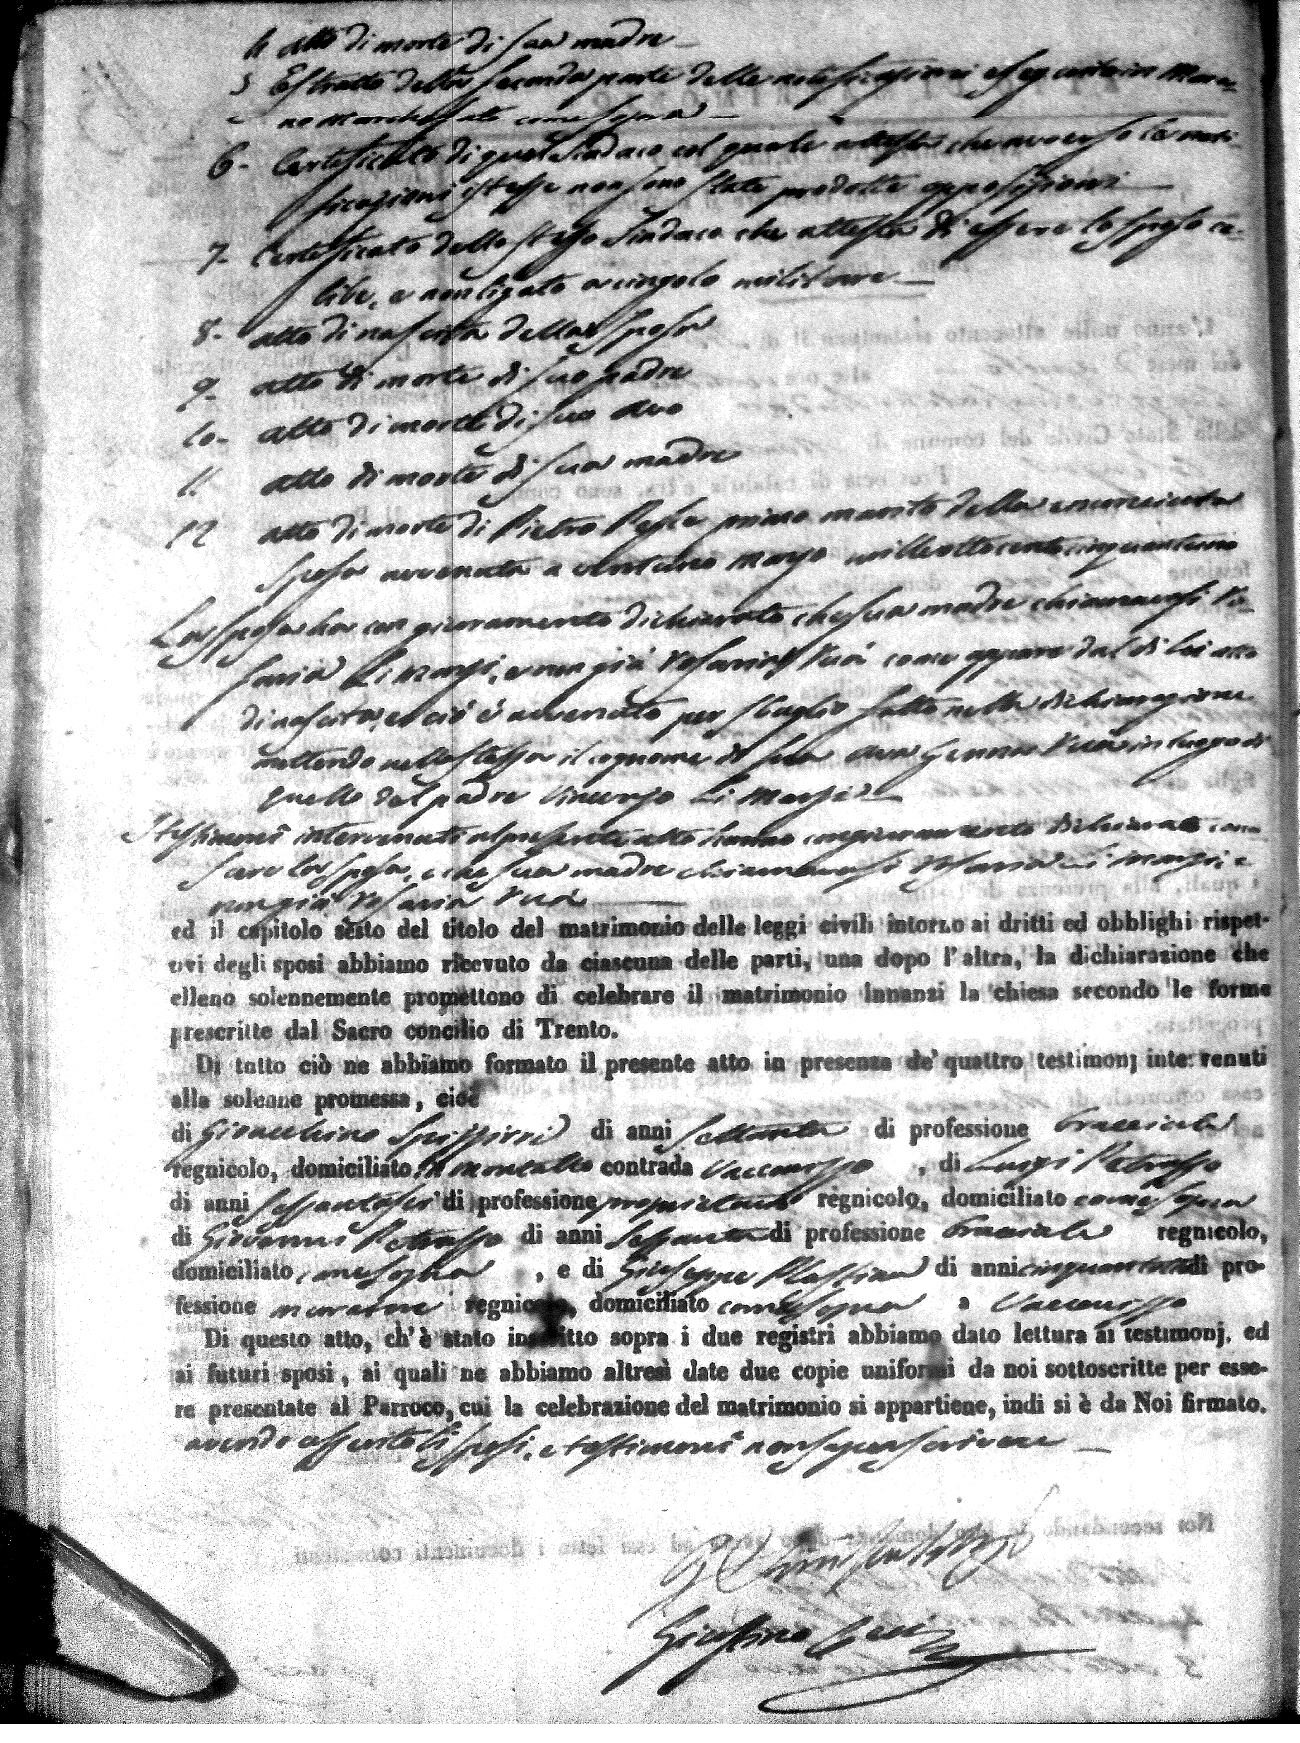 4. atto di morte di sua madre
5 Estratto della seconda parte delle notificazioni eseguite in Mara-
no Marchesato come sopra
6- Certificato di quel Sindaco col quale attesta che avverso le noti-
ficazioni istesse non sono state prodotte opposizioni
7- Certificato dello stesso Sindaco che attesta di essere lo sposo ce-
libe, e non ligato a cingolo militare
8- atto di nascita della sposa
9- atto di morte di suo padre
10- atto di morte di suo avo
11. atto di morte di sua madre
12 atto di morte di Pietro primo marito della enunciata
sposa avvenuta a ventuno marzo milleottocento
La sposa ha con giuramento dichiarato che sua madre chiamavasi Ro-
saria Li Marzi, e non già Rosaria Vuà come appare dal di lei atto
di nascita, e ciò è avvenuto per sbaglio fatto nella dichiarazione
mettendo nella stessa il cognome di sua ava Vuà in luogo di
quello del padre Vincenzo Li Marzi
I testimonî intervenuti al presente atto hanno con giuramento dichiarato cono-
scere la sposa, e che sua madre chiamavasi Rosaria Li Marzi e
non già Rosaria Vuà
ed il capitolo sesto del titolo del matrimonio delle leggi civili intorno ai dritti ed obblighi rispet-
tivi degli sposi abbiamo ricevuto da ciascuna delle parti, una dopo l'altra, la dichiarazione che
elleno solennemente promettono di celebrare il matrimonio innanzi la chiesa secondo le forme
prescritte dal Sacro concilio di Trento.
Di tutto ciò ne abbiamo formato il presente atto in presenza de' quattro testimonj intervenuti
alla solenne promessa, cioè
di Gioacchino Spizzirri di anni settanta di professione bracciale
regnicolo, domiciliato in Montalto contrada Vaccarizzo, di Luigi Petrasso
di anni sessantasei di professione proprietario regnicolo, domiciliato come sopra
di Giovanni Petrasso di anni sessanta di professione bracciale regnicolo,
domiciliato come sopra, e di Giuseppe Plastina di anni di pro-
fessione regnicolo, domiciliato come sopra a Vaccarizzo
Di questo atto, ch'è stato inscritto sopra i due registri abbiamo dato lettura ai testimonj, ed
ai futuri sposi, ai quali ne abbiamo altresì date due copie uniformi da noi sottoscritte per esse-
re presentate al Parroco, cui la celebrazione del matrimonio si appartiene, indi si è da Noi firmato.
avendo asserito li sposi, e testimonî non saper scrivere